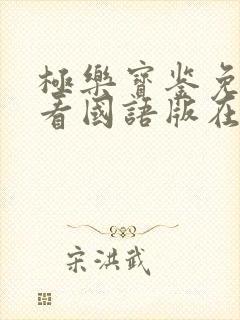 極樂寶鉴免
看國語版在
宋洪武